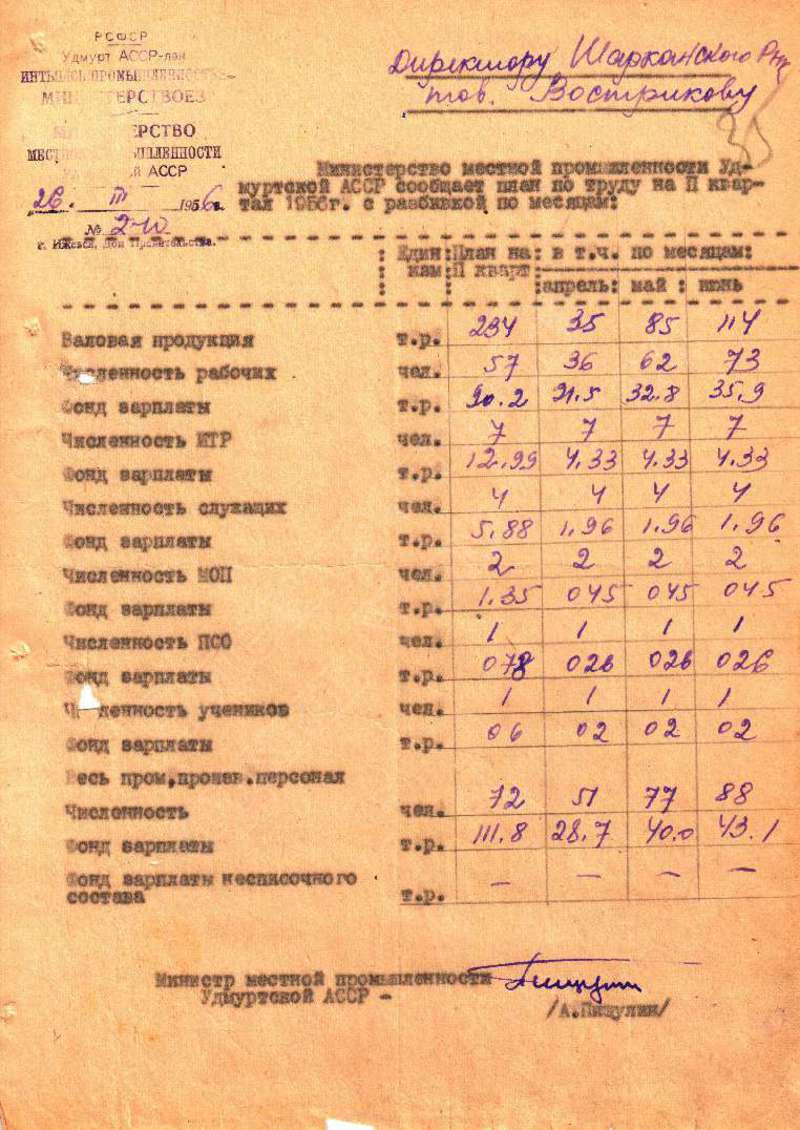 РСФСР
Удмурт АССР-лэн
ИНТЫЫСЬ ПРОМЫШЛЕННОСТЬЯ
МИНИСТЕРСТВОЕЗ
МИНИСТЕРСТВО
МЕСТНОЙ ПРОМЫШЛЕННОСТИ
АССР
26. III 1956г.
№ 2-10
г. Ижевск, Дом Правительства.
Директору Шарканского
тов. Вострикову
Министерство местной промышленности Уд-
муртской АССР сообщает план по труду на П квар-
тал 1956г. с разбивкой по месяцам:
Един изм : План на П кварт : в т.ч. по месяцам:
апрель: май : июнь
Валовая продукция т.р. 234 35 85 114
Численность рабочих чел. 57 36 62 73
Фонд зарплаты т.р. 90.2 21.5 32.8 35.9
Численность ИТР чел. 7 7 7 7
Фонд зарплаты т.р. 12.99 4.33 4.33 4.33
Численность служащих чел. 4 4 4 4
Фонд зарплаты т.р. 5.88 1.96 1.96 1.96
Численность МОП чел. 2 2 2 2
Фонд зарплаты т.р. 1.35 045 045 045
Численность ПСО чел. 1 1 1 1
Фонд зарплаты т.р. 078 026 026 026
Ч ленность учеников чел. 1 1 1 1
Фонд зарплаты т.р. 06 02 02 02
Весь пром.произв.персонал
Численность чел. 72 51 77 88
Фонд зарплаты т.р. 111.8 28.7 40.0 43.1
Фонд зарплаты несписочного
состава т.р. — — — —
Министр местной промышленности
Удмуртской АССР -
/А.Пищулин/